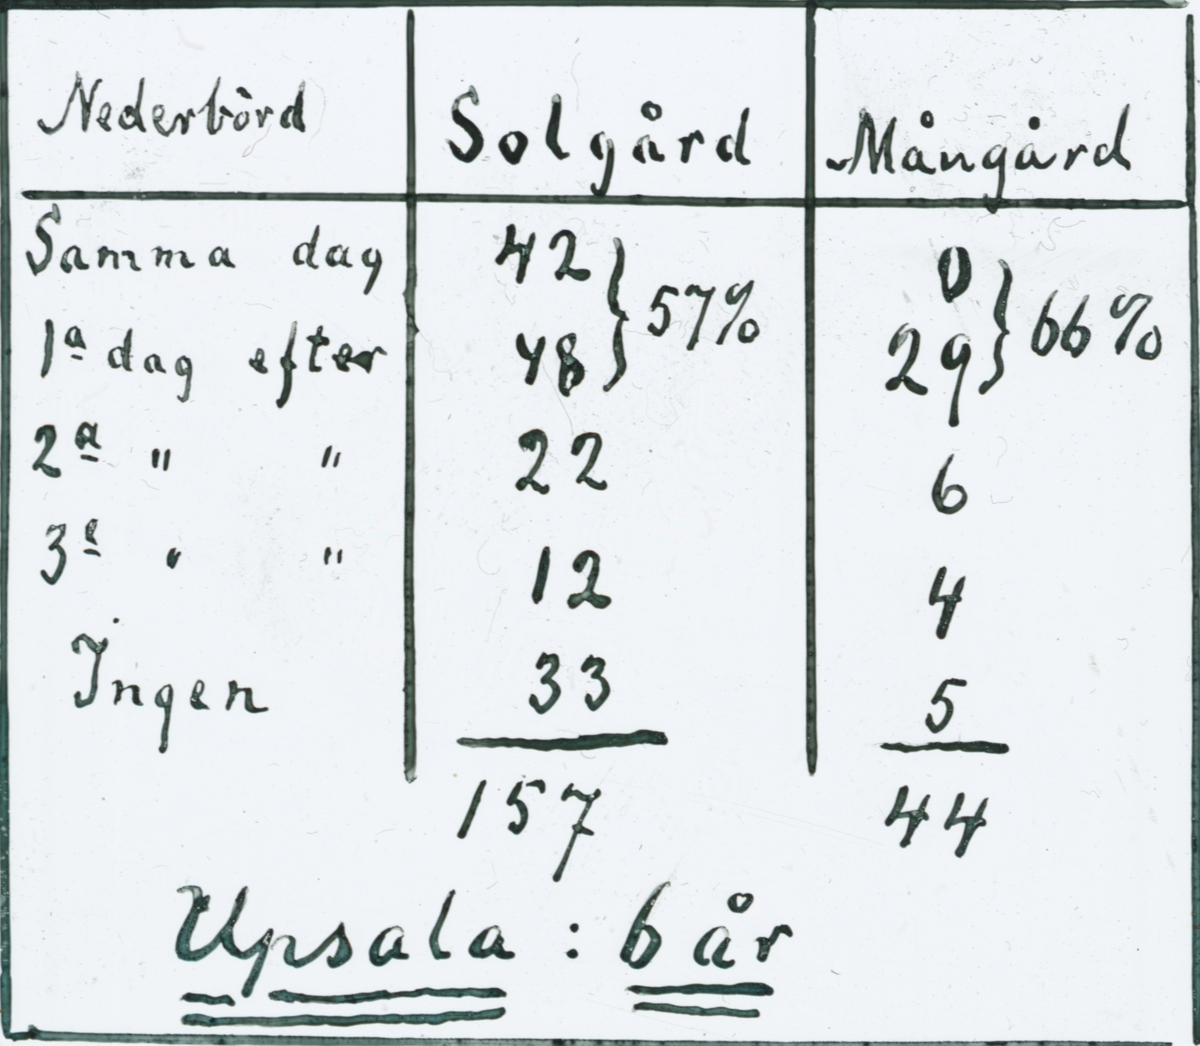 Nederbörd Solgård Mångård
Samma dag 42 } 57% 0 } 66%
1a dag efter 48 29
2a " " 22 6
3e " " 12 4
Ingen 33 5
157 44
Upsala : 6 år